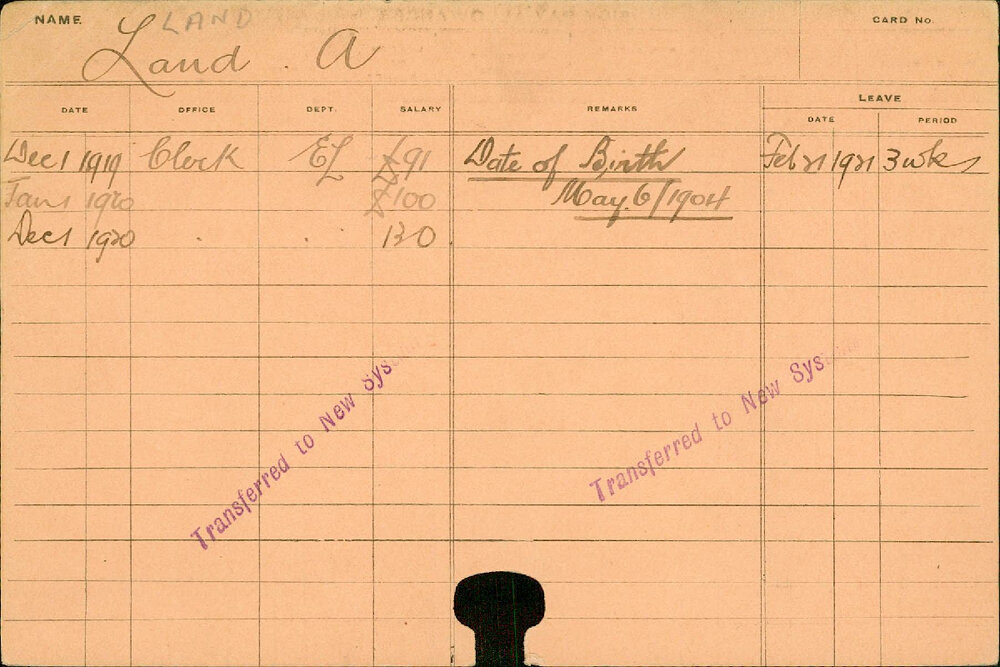 NAME LAND CARD No.
Land . A
DATE OFFICE DEPT. SALARY REMARKS LEAVE
DATE PERIOD
Dec 1 1919 Clerk EL £91 Date of Birth Feb 21 1921 3 wks
Jan 1 1920 £100 May. 6/1904
Dec 1 1920 . . 130
Transferred to New Sys
Transferred to New Sys